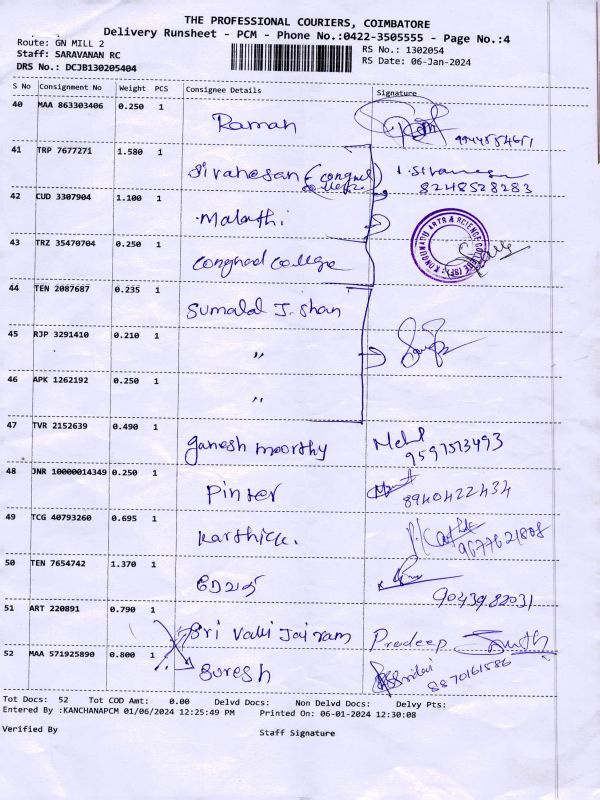 THE PROFESSIONAL COURIERS, COIMBATORE
Delivery Runsheet - PCM - Phone No.:0422-3505555 - Page No.:4
Route: GN MILL 2
RS No.: 1302054
Staff: SARAVANAN RC
RS Date: 06-Jan-2024
DRS No.: DCJB130205404
S No Consignment No Weight PCS Consignee Details Signature
40 MAA 863303406 0.250 1 Raman
41 TRP 7677271 1.580 1 Sivanesan 8248528283
42 CUD 3307904 1.100 1 Malathi
KONGUNADU ARTS & SCIENCE COLLEGE
43 TRZ 35470704 0.250 1 College
44 TEN 2087687 0.235 1 Sumalal J. Shan
45 RJP 3291410 0.210 1 "
46 APK 1262192 0.250 1 "
47 TVR 2152639 0.490 1 Ganesh moorthy
9597573493
48 JNR 10000014349 0.250 1 Pinter 8940422434
49 TCG 40793260 0.695 1 Karthick. 9677621808
50 TEN 7654742 1.370 1
9043982031
51 ART 220891 0.790 1 Sri Valli Jairam Pradeep
52 MAA 571925890 0.800 1 Suresh 8870161586
Tot Docs: 52 Tot COD Amt: 0.00 Delvd Docs: Non Delvd Docs: Delvy Pts:
Entered By :KANCHANAPCM 01/06/2024 12:25:49 PM Printed On: 06-01-2024 12:30:08
Verified By Staff Signature